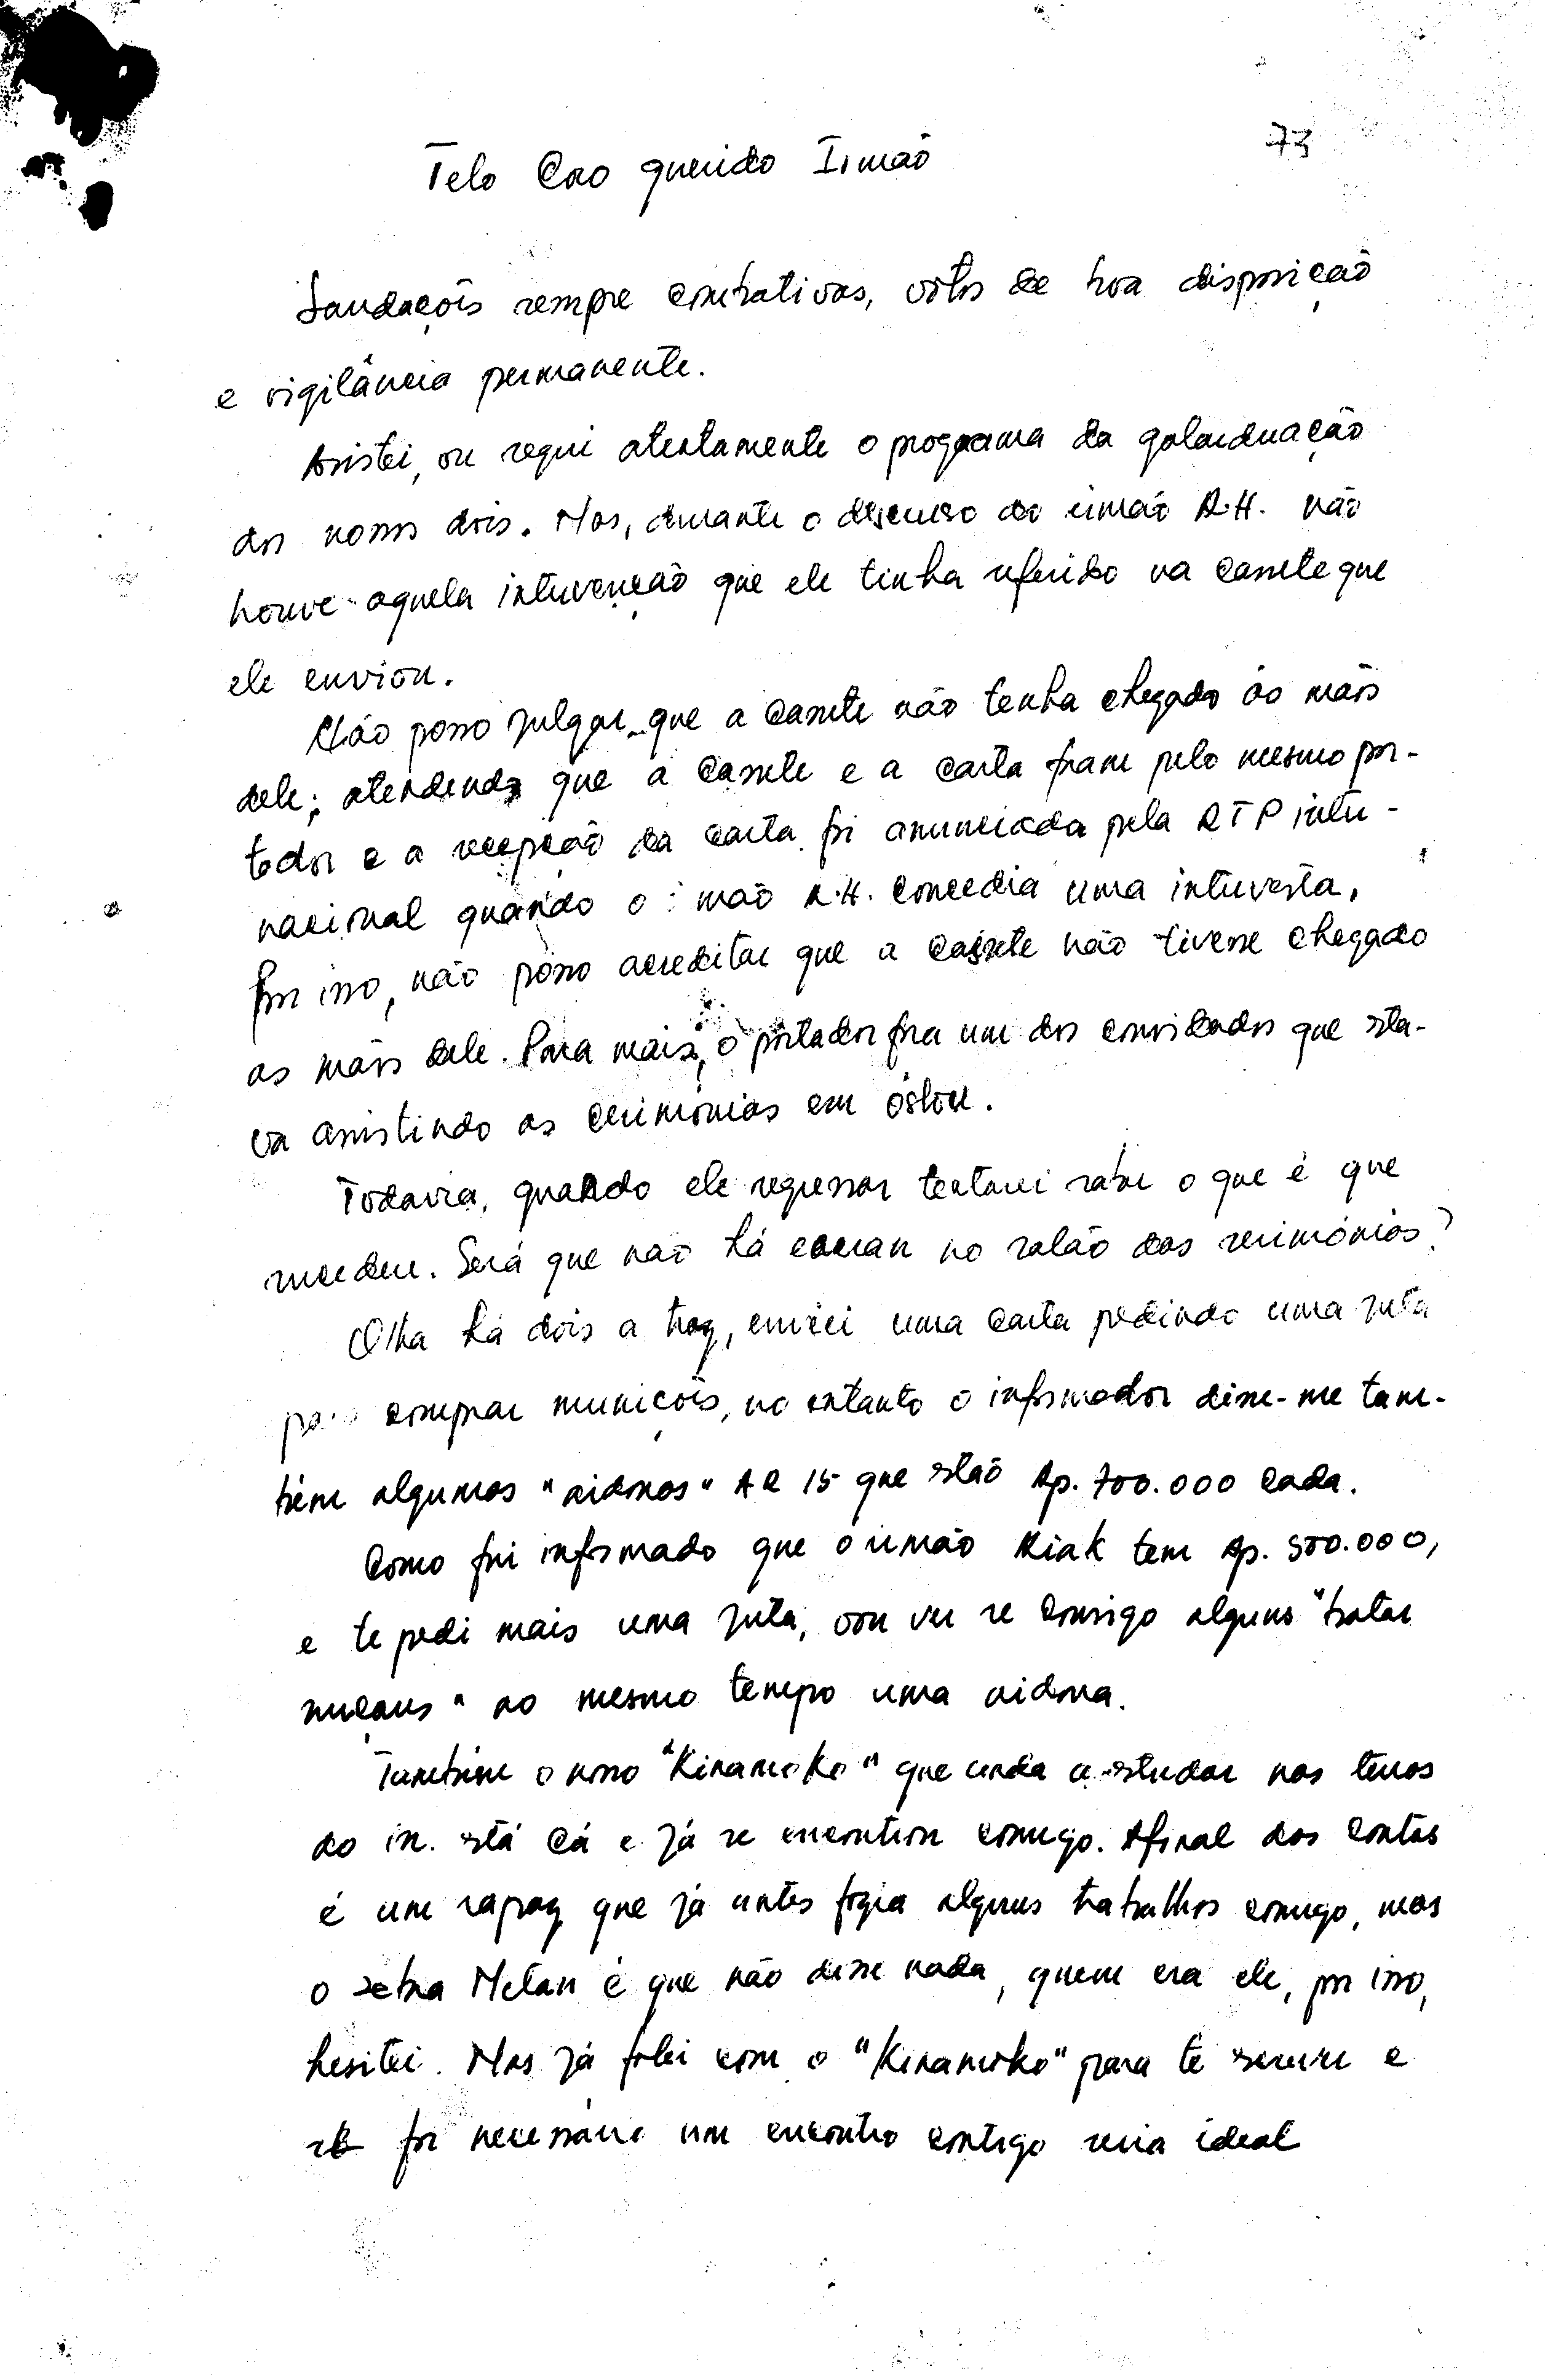 73
Telo Cao querido Irmão
Saudações sempre combativas, votos de boa disposição
e vigilância permanente.
Assistei, ou segui atentamente o programa da galarduação
dos nossos dois. Mas, durante o discurso do irmão R.H. não
houve aquela intervenção que ele tinha referido na cassete que
ele enviou.
Não posso julgar que a cassete não tenha chegado às mãos
dele; atendendo que a cassete e a carta foram pelo mesmo por-
tador e a recepção da carta foi anunciada pela RTP inter-
nacional quando o irmão R.H. concedia uma intervesta,
Por isso, não posso acreditar que a cassete não tivesse chegado
as mãos dele. Para mais, o portador fora um dos convidados que esta-
va assistindo as cerimónias em óslou.
Todavia, quando ele regressar tentarei saber o que é que
sucedeu. Será que não lá no salão das serimónias?
Olha há dois a traz, enviei uma carta pedindo uma juta
para comprar munições, no entanto o informador disse-me tam-
bém algumas "aidonas" AR 15 que estão Rp. 700.000 cada.
Como fui informado que o irmão Riak tem Rp. 500.000,
e te pedi mais uma juta, vou ver se consigo alguns "batar
mulaus" ao mesmo tempo uma aidona.
Também o nosso "Kinamoko" que anda a estudar nas terras
do in. está cá e já se encontrou comigo. Afinal das contas
é um rapaz que já antes fazia alguns trabalhos comigo, mas
o Metan é que não disse nada, quem era ele, por isso,
hesitei. Mas já falei com o "Kinamoko" para te screver e
se for necessário um encontro contigo seria ideal